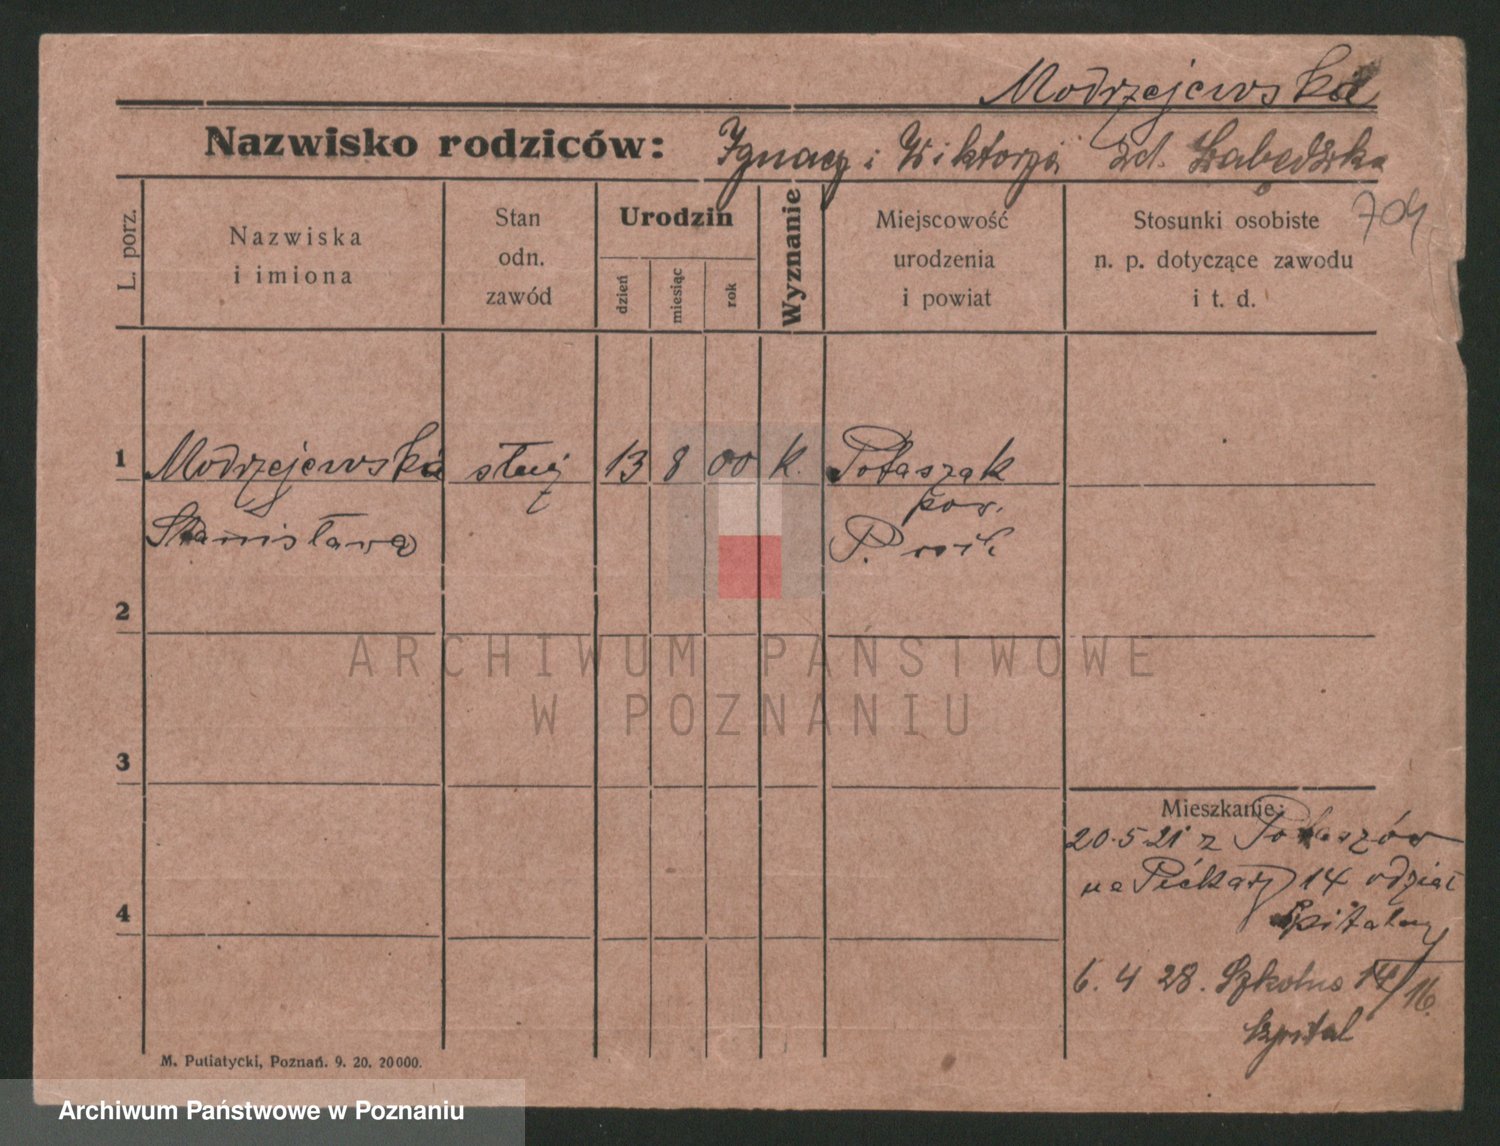 Modrzejewska
Nazwisko rodziców: Ignacy i Wiktorya zd. Łabędzka
704
L. porz.
Nazwiska
i imiona
Stan
odn.
zawód
Urodzin
dzień
miesiąc
rok
Wyznanie
Miejscowość
urodzenia
i powiat
Stosunki osobiste
n. p. dotyczące zawodu
i t. d.
1 Modrzejewska służ 13 8 00 k. Potaszak
pow.
Stanisława P.
2
ARCHIWUM PAŃSTWOWE
W POZNANIU
3
Mieszkanie:
20.5 21 z Potaszów
na Piekary 14 odział
4
Szpitalny
6. 4 28. Szkolna 14/16.
szpital
M. Putiatycki, Poznań. 9. 20. 20000.
Archiwum Państwowe w Poznaniu